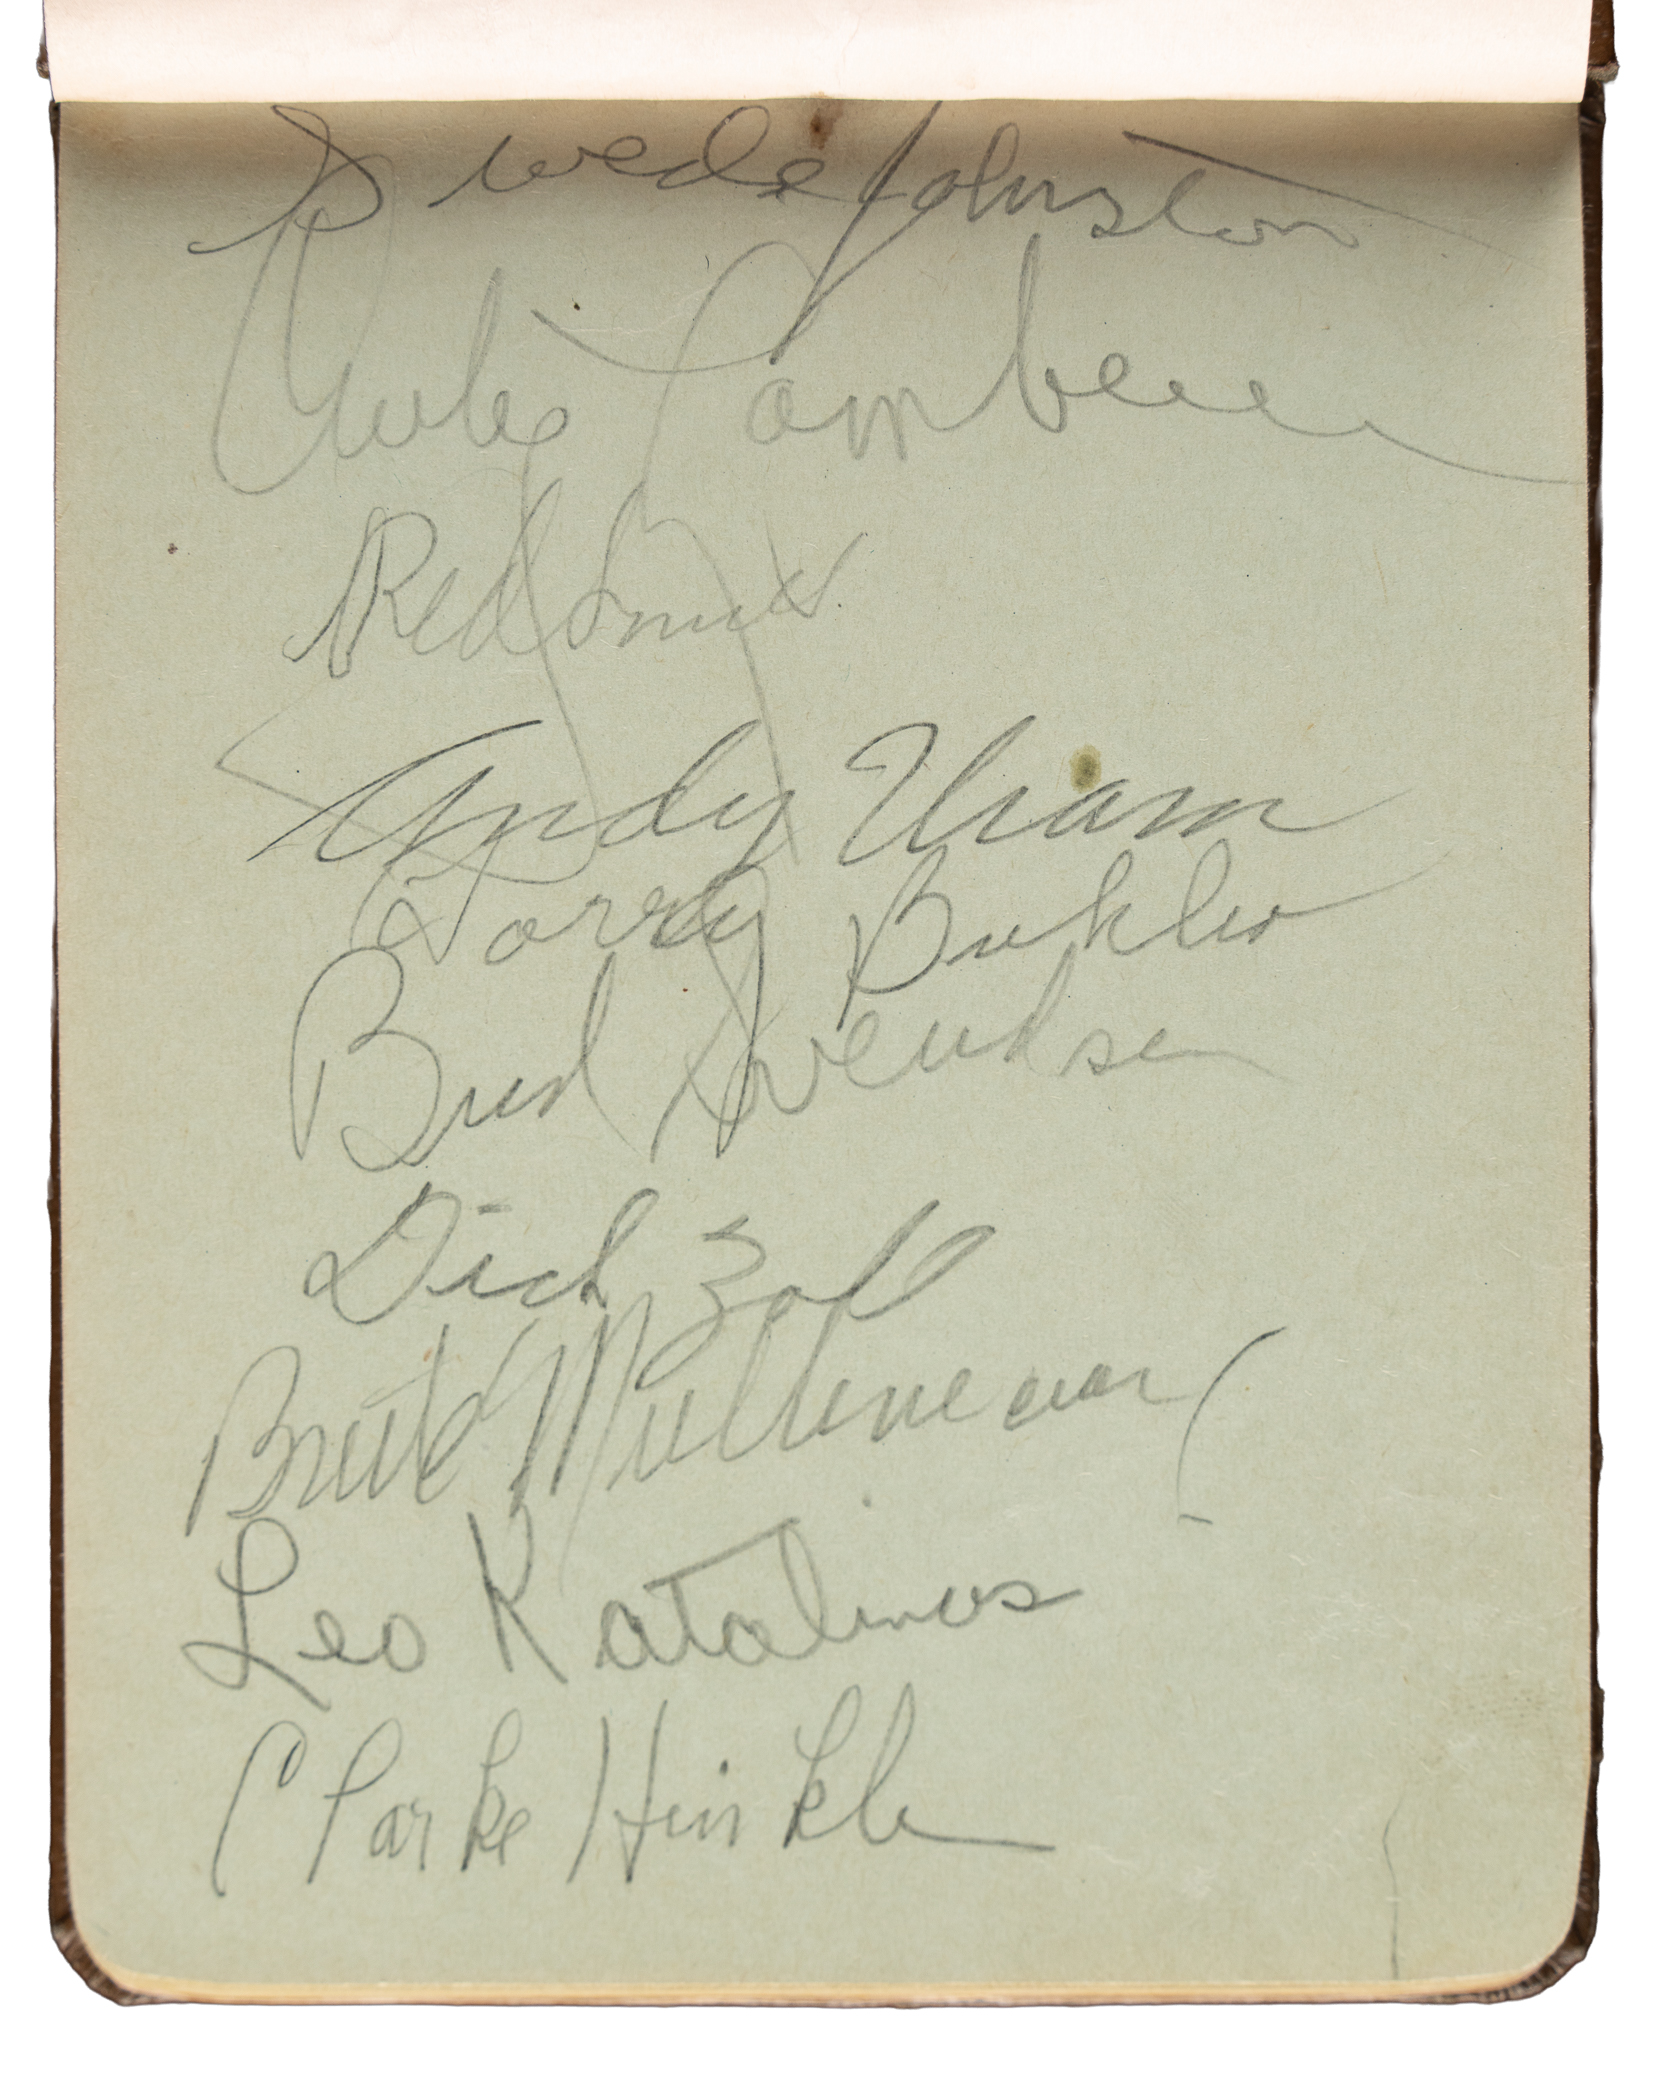 Swede Johnston
Curly Lambeau
Red Smith
Andy Uram
Larry Buhler
Bud Svendsen
Dick Zoll
Brute Mulleneaux
Leo Katalinas
Clarke Hinkle